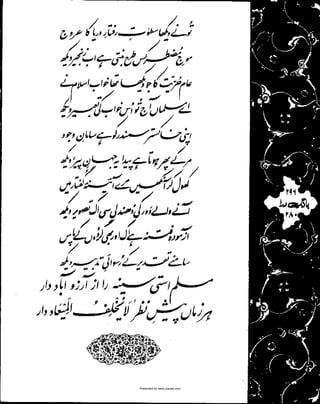 تو نے دیکھا سطوتِ رفتارِ دریا کا عروج
موجِ مضطر کس طرح بنتی ہے اب زنجیر دیکھ
عام حریت کا جو دیکھا تھا خواب اسلام نے
اے مسلماں آج تو اس خواب کی تعبیر دیکھ
اپنی خاکستر سمندر کو ہے سامانِ وجود
مر کے پھر ہوتا ہے پیدا یہ جہانِ پیر دیکھ
کھول کر آنکھیں مرے آئینۂ گفتار میں
آنے والے دور کی دھندلی سی اک تصویر دیکھ
آزمودہ فتنہ ہے اک اور بھی گردوں کے پاس
سامنے تقدیر کے رسوائیِ تدبیر دیکھ
مسلم استی سینہ را از آرزو آباد دار
ہر زماں پیشِ نظر لا یخلف المیعاد دار
۲۹۶
بانگِ درا
۲۸۰